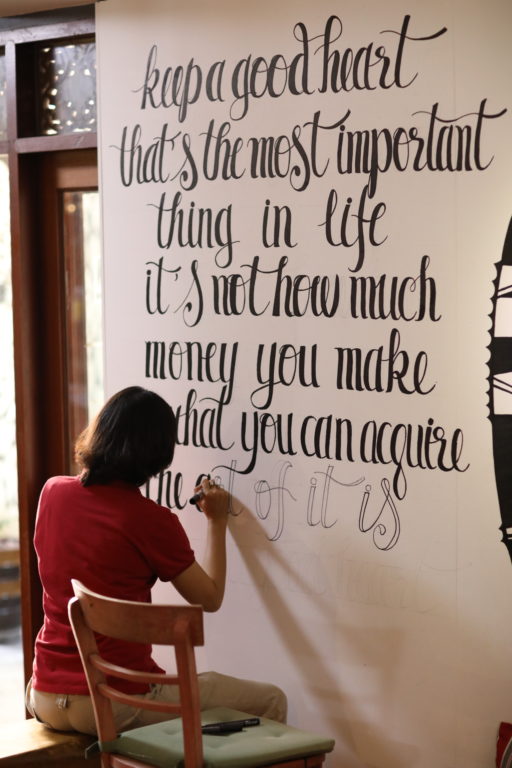 keep a good heart
that's the most important
thing in life
it's not how much
money you make
you can acquire
the art of it is